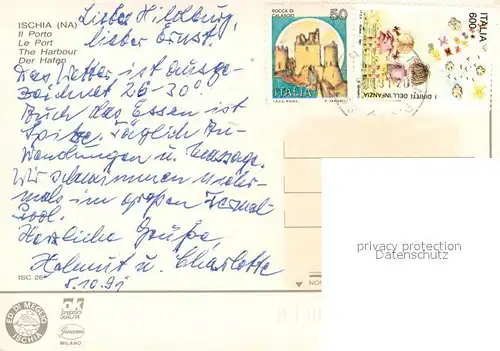 ISCHIA (NA)
Il Porto
Le Port
The Harbour
Der Hafen
Liebe Hildburg,
lieber Ernst.
Das Wetter ist ausge-
zeichnet 26-30°
Auch das Essen ist
Spitze, täglich An-
wendungen u. Massage.
Wir schwimmen mehr-
mals im großen Thermal-
Pool.
Herzliche Grüße,
Helmut u. Charlotte
5.10.91
ROCCA DI
CALASCIO
50
ITALIA
I.P.Z.S. ROMA
ITALIA
600
I DIRITTI DELL'INFANZIA
privacy protection
Datenschutz
ISC 26
NON
ED. DI MEGLIO
ISCHIA
MILANO